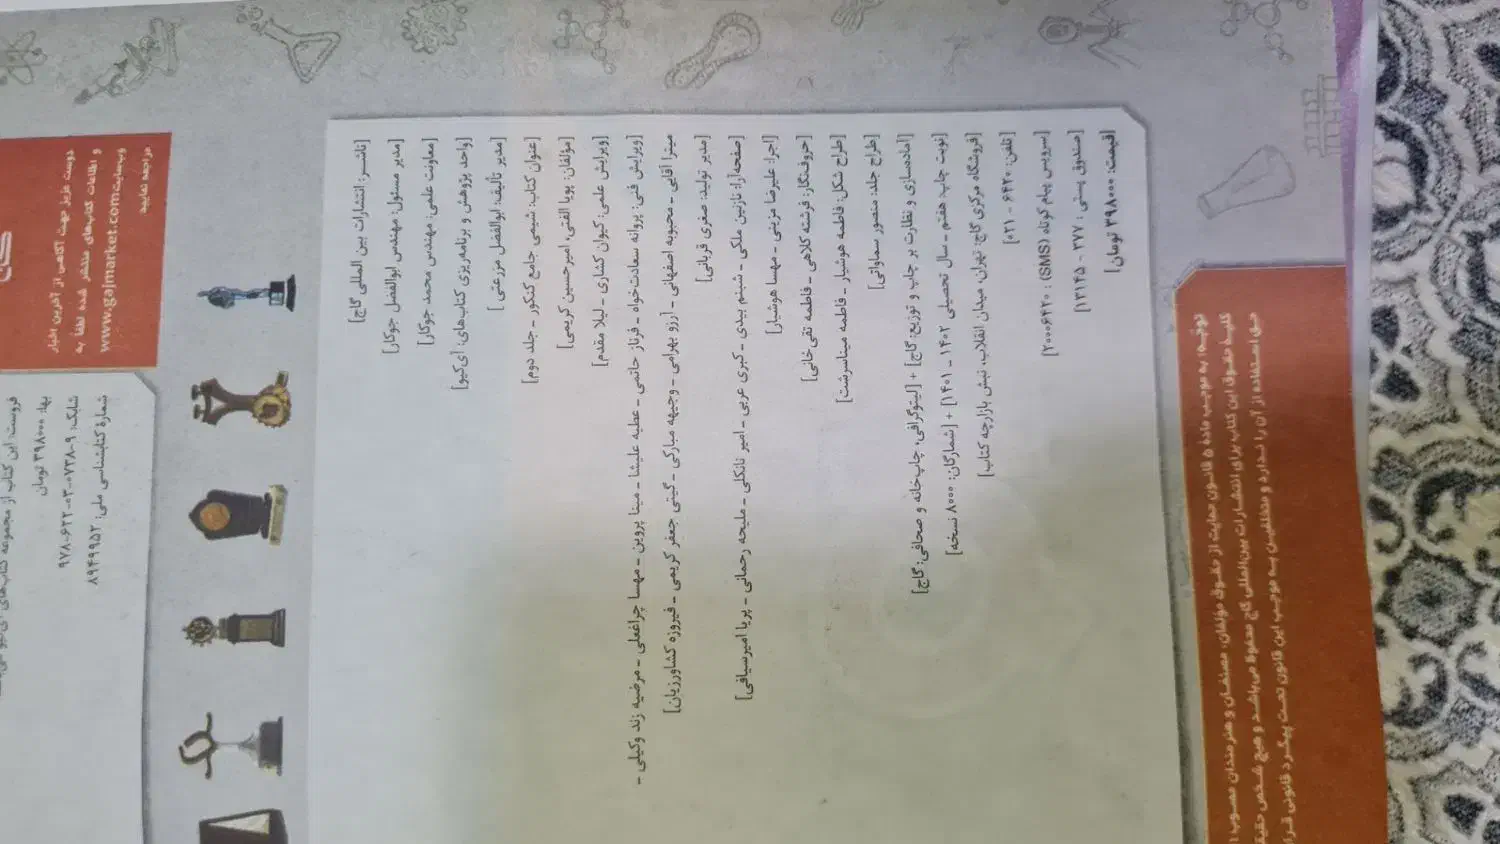 دوست عزیز جهت آگاهی از آخرین اخبار
و اطلاعات کتاب‌های منتشر شده لطفا به
وب‌سایت www.gajmarket.com
مراجعه نمایید
فروست: این کتاب از مجموعه کتاب‌های
بها: ۳۹۸۰۰۰ تومان
شابک: ۹-۰۷۳۸-۰۳-۶۲۲-۹۷۸
شمارهٔ کتابشناسی ملی: ۸۹۴۹۹۵۲
[ناشر: انتشارات بین المللی گاج]
[مدیر مسئول: مهندس ابوالفضل جوکار]
[معاونت علمی: مهندس محمد جوکار]
[واحد پژوهش و برنامه‌ریزی کتاب‌های: آی‌کیو]
[مدیر تألیف: ابوالفضل مزرعتی]
[عنوان کتاب: شیمی جامع کنکور ـ جلد دوم]
[مؤلفان: پویا الفتی، امیرحسین کریمی]
[ویرایش علمی: کیوان کشاری ـ لیلا مقدم]
[ویرایش فنی: پروانه سعادت‌خواه ـ فرناز حاتمی ـ عطیه علیشا ـ مینا پروین ـ مهسا چراغعلی ـ مرضیه زند وکیلی ـ
میترا آقایی ـ محبوبه اصفهانی ـ آرزو بهرامی ـ وجیهه مبارکی ـ گیتی جعفر کریمی ـ فیروزه کشاورزیان]
[مدیر تولید: صغری قربانی]
[صفحه‌آرا: نازنین ملکی ـ شبنم بیدی ـ کبری عربی ـ امیر نانکلی ـ ملیحه رحمانی ـ پریا امیرسیافی]
[اجرا: علیرضا مزینی ـ مهسا هوشیار]
[حروف‌نگار: فرشته کلاهی ـ فاطمه تقی خانی]
[طراح شکل: فاطمه هوشیار ـ فاطمه میناسرشت]
[طراح جلد: منصور سماواتی]
[آماده‌سازی و نظارت بر چاپ و توزیع: گاج] + [لیتوگرافی، چاپ‌خانه و صحافی: گاج]
[نوبت چاپ: هفتم ـ سال تحصیلی ۱۴۰۲ ـ ۱۴۰۱] + [شمارگان: ۸۰۰۰ نسخه]
[فروشگاه مرکزی گاج: تهران، میدان انقلاب، نبش بازارچه کتاب]
[تلفن: ۶۴۲۰ - ۰۲۱]
[سرویس پیام کوتاه (SMS) : ۲۰۰۰۶۴۲۰]
[صندوق پستی : ۳۷۷ - ۱۳۱۴۵]
[قیمت: ۳۹۸۰۰۰ تومان]
توجه: به موجب ماده ۵ قانون حمایت از حقوق مؤلفان، مصنفان و هنرمندان مصوب
کلیهٔ حقوق این کتاب برای انتشارات بین‌المللی گاج محفوظ می‌باشد و هیچ شخص
حق استفاده از آن را ندارد و متخلفین به موجب این قانون تحت پیگرد قانونی